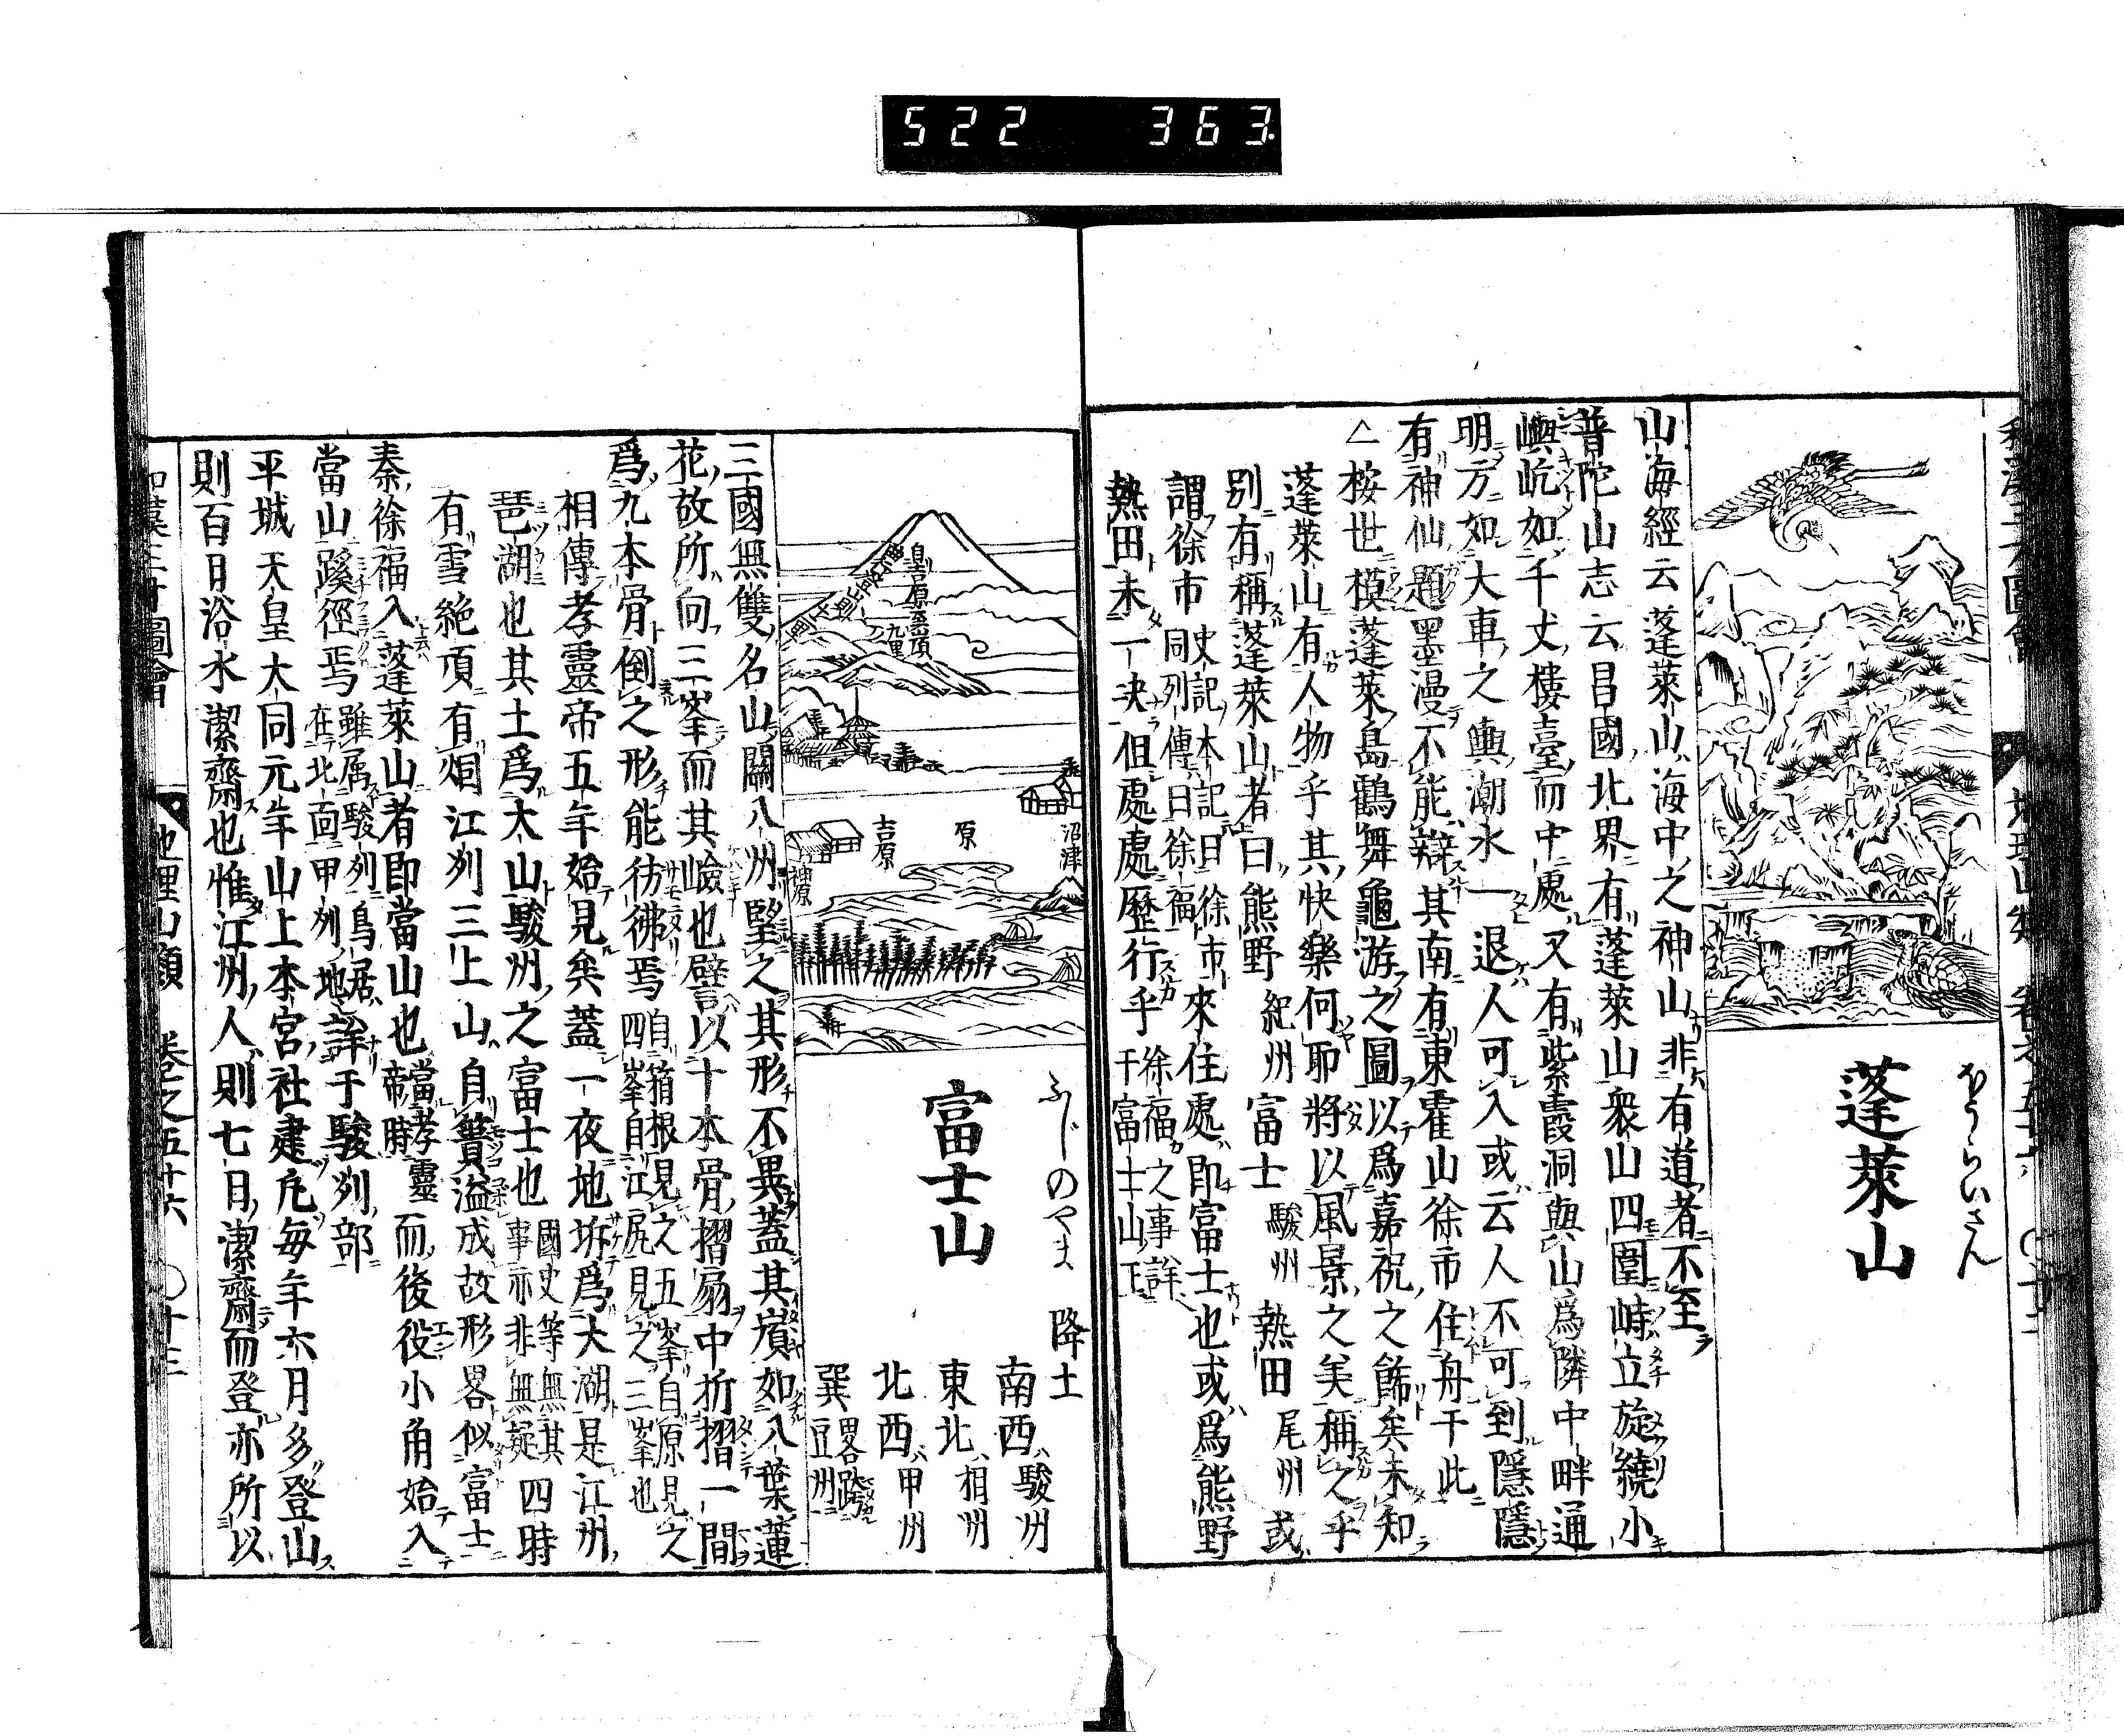 522 363
蓬萊山
ほうらいさん
山海經云蓬萊山海中之神山非有道者不至
普陀山志云昌國北界有蓬萊山衆山四圍峙立旋繞小
嶼屹如千丈樓臺而中處又有紫霞洞與山爲隣中畔通
明方如大車之輿潮水一退人可入或云人不可到隱隱
有神仙題墨漫不能辯其南有東霍山徐市住舟于此
△按世模蓬萊島鶴舞龜游之圖以爲嘉祝之餙矣未知
蓬萊山有人物乎其快樂何耶將以風景之美稱之乎
別有稱蓬萊山者曰熊野紀州富士駿州熱田尾州或
謂徐市史記本記曰徐市同列傳曰徐福來住處即富士也或爲熊野
熱田未一决但處處歷行乎徐福之事詳于富士山下
富士山
ふじのやま
降土
南西駿州
東北相州
北西甲州
巽豆州畧跨
皇原至頂九里
吉原
原
沼津
神原
三國無雙名山關八州望之其形不異蓋其嶺如八葉蓮
花故所向三峯而其嶮也譬以十本骨摺扇中折摺一間
爲九本骨倒之形能彷彿焉自箱根見之五峯自原見之四峯自江尻見之三峯也
相傳孝靈帝五年始見矣蓋一夜地坼爲大湖是江州
琶湖也其土爲大山駿州之富士也國史等無其事亦非無疑四時
有雪絶頂有烟江刕三上山自簣溢成故形畧似富士
秦徐福入蓬萊山者即當山也當孝靈帝時而後役小角始入
當山蹊徑焉雖属駿刕鳥居在北面甲刕地詳于駿刕部
平城天皇大同元年山上本宮社建凢每年六月多登山
則百日浴水潔齋也惟江州人則七日潔齋而登亦所以
和漢三才圖會 地理山類 卷之五十六 〇十三